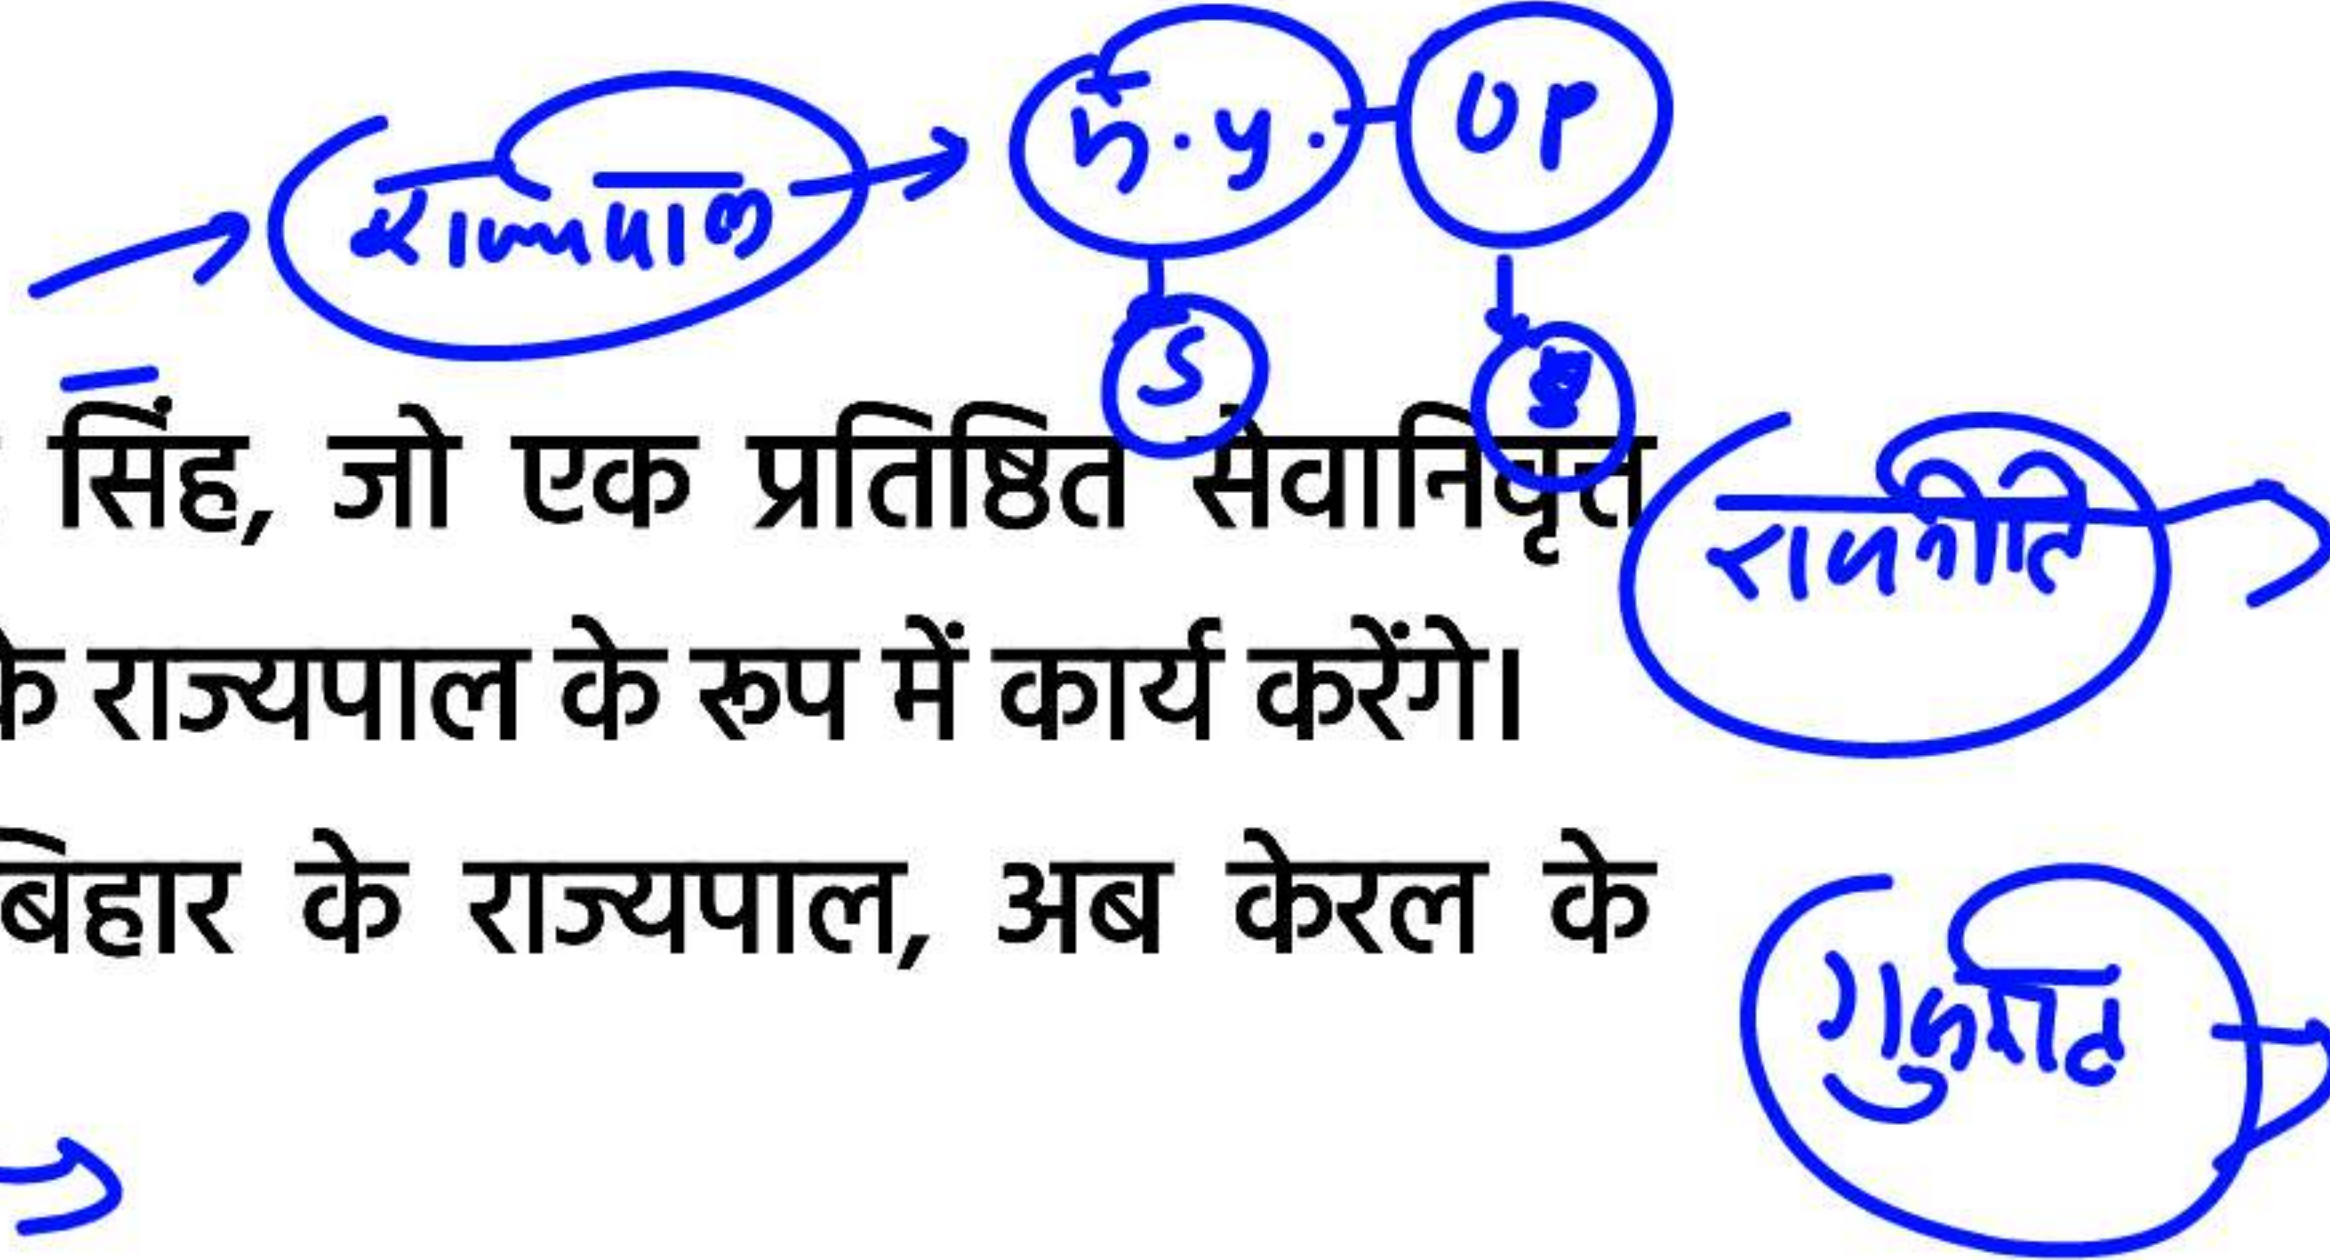 राज्यपाल
UP
S
सिंह, जो एक प्रतिष्ठित सेवानिवृत्त
राजनीति
के राज्यपाल के रूप में कार्य करेंगे।
बिहार के राज्यपाल, अब केरल के